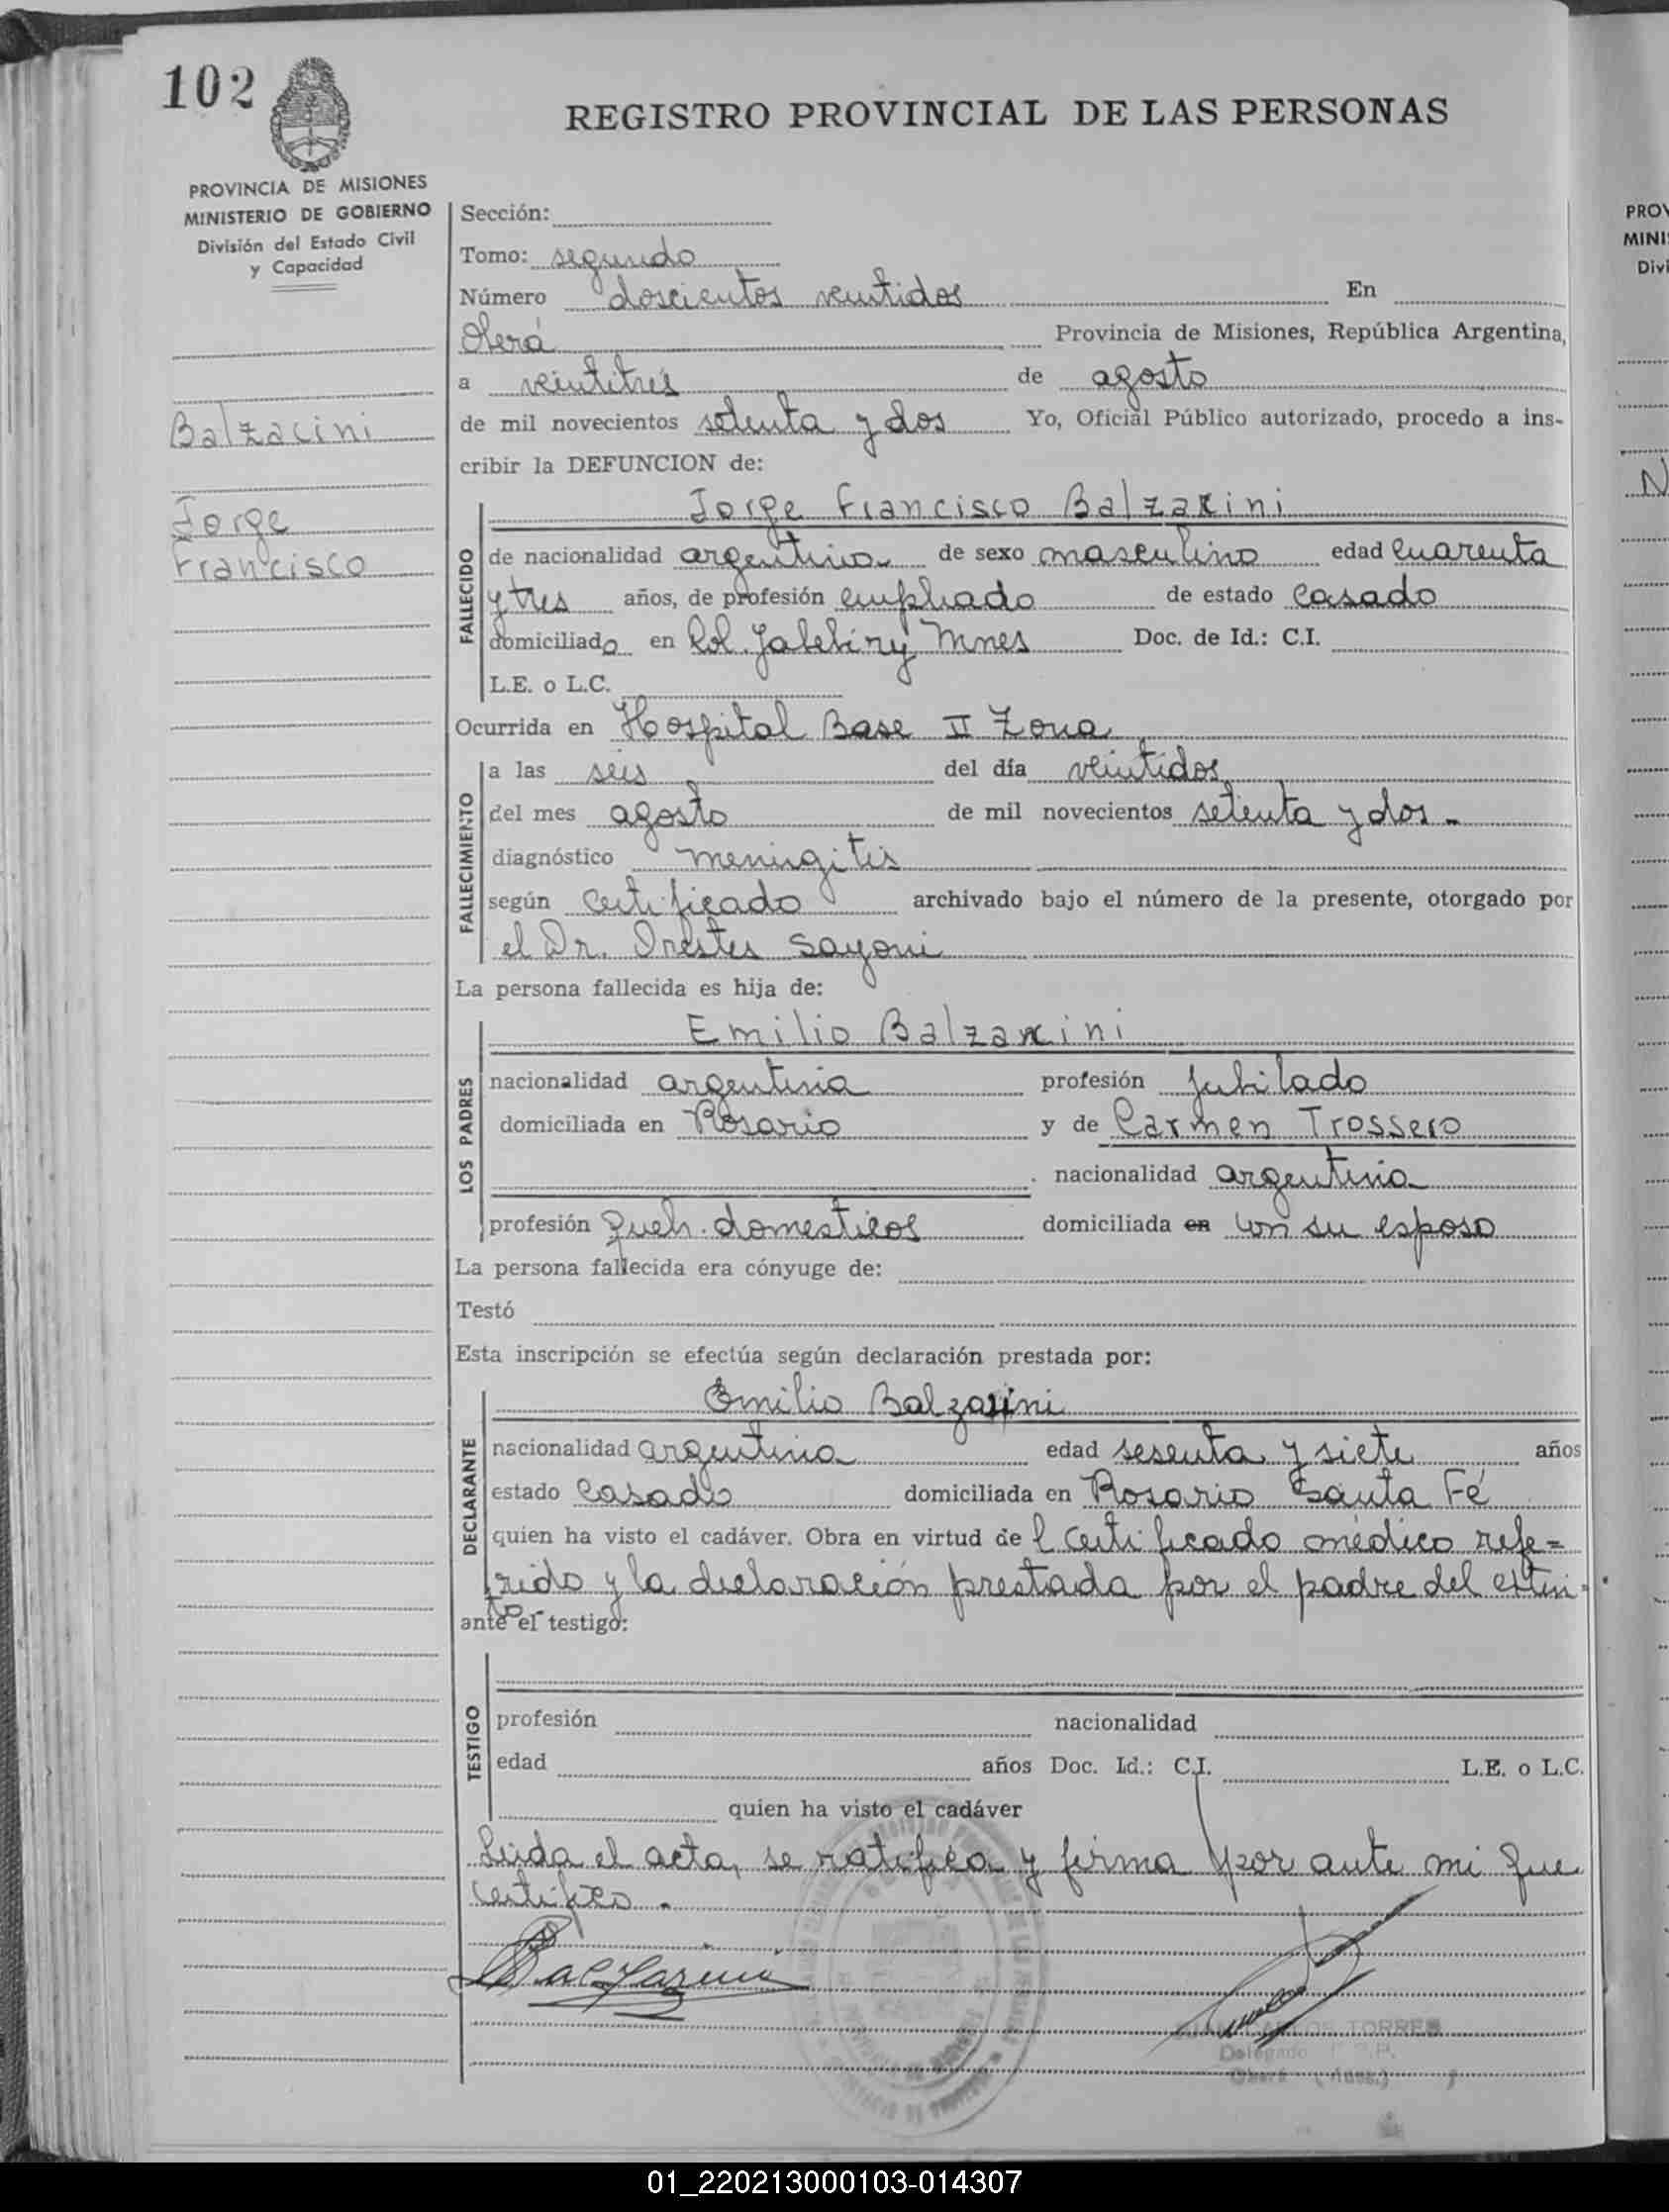 102
REGISTRO PROVINCIAL DE LAS PERSONAS
PROVINCIA DE MISIONES
MINISTERIO DE GOBIERNO
División del Estado Civil
y Capacidad
Balzacini
Jorge
Francisco
Sección:
Tomo: segundo
Número doscientos veintidos En
Oberá Provincia de Misiones, República Argentina,
a veintitrés de agosto
de mil novecientos setenta y dos Yo, Oficial Público autorizado, procedo a ins-
cribir la DEFUNCION de:
Jorge Francisco Balzarini
FALLECIDO
de nacionalidad argentina de sexo masculino edad cuarenta
y tres años, de profesión empleado de estado casado
domiciliado en Col. Yabebiry Mnes Doc. de Id.: C.I.
L.E. o L.C.
Ocurrida en Hospital Base II Zona
FALLECIMIENTO
a las seis del día veintidos
del mes agosto de mil novecientos setenta y dos.
diagnóstico meningitis
según certificado archivado bajo el número de la presente, otorgado por
el Dr. Orestes
La persona fallecida es hija de:
LOS PADRES
Emilio Balzarini
nacionalidad argentina profesión jubilado
domiciliada en Rosario y de Carmen Trossero
nacionalidad argentina
profesión queh. domesticos domiciliada en con su esposo
La persona fallecida era cónyuge de:
Testó
Esta inscripción se efectúa según declaración prestada por:
DECLARANTE
Emilio Balzarini
nacionalidad argentina edad sesenta y siete años
estado casado domiciliada en Rosario Santa Fé
quien ha visto el cadáver. Obra en virtud de l certificado médico refe=
rido y la declaración prestada por el padre del extin-
to-
ante el testigo:
TESTIGO
profesión nacionalidad
edad años Doc. Id.: C.I. L.E. o L.C.
quien ha visto el cadáver
Leída el acta, se ratifica y firma por ante mi que
certifico.
Balzarini
TORRES
Delegado
PROV
MINI
Divi
N
01_220213000103-014307